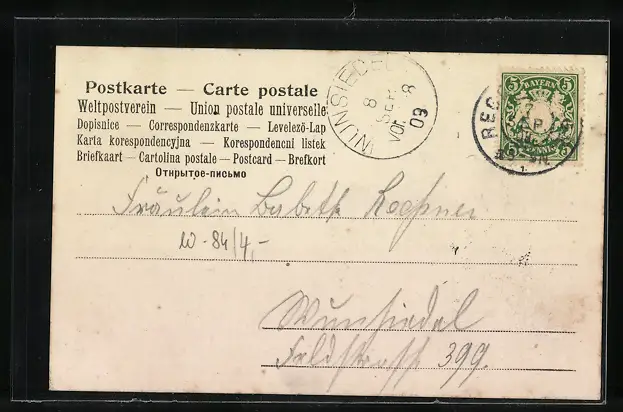 Postkarte — Carte postale
Weltpostverein — Union postale universelle
Dopisnice — Correspondenzkarte — Levelező-Lap
Karta korespondencyjna — Korespondencni listek
Briefkaart — Cartolina postale — Postcard — Brefkort
Открытое-письмо
WUNSIEDEL
8
SEP.
VOR. 8
03
5 BAYERN 5
5 PFENNIG 5
Fräulein Babeth
10-84/4,-
Wunsiedel
Feldstrasse 399.